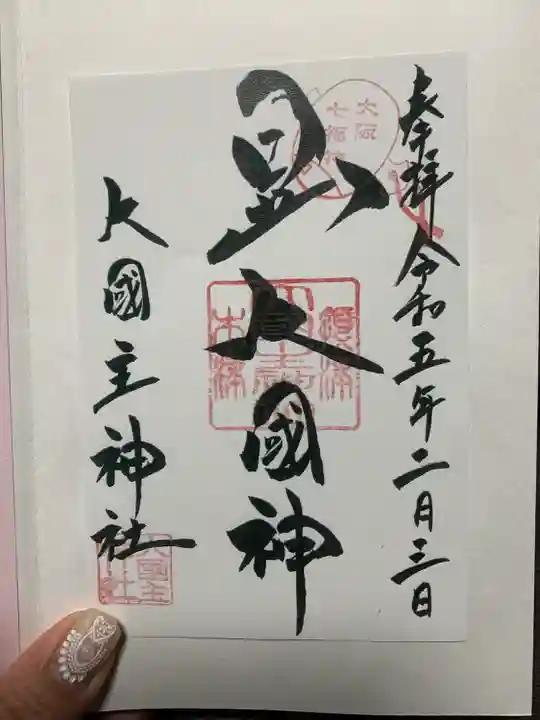 奉拝 令和五年二月三日
大阪
七福神
日出大國神
大國主神社
大國主
神社